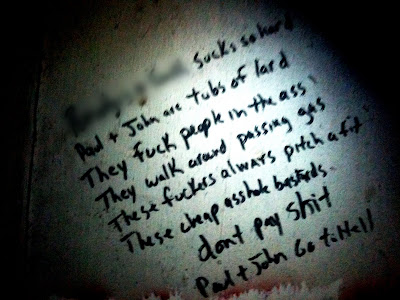 sucks so hard
Paul + John are tubs of lard
They fuck people in the ass
They walk around passing gas
These fuckers always pitch a fit
These cheap asshole bastards
dont pay shit
Paul + John Go to Hell